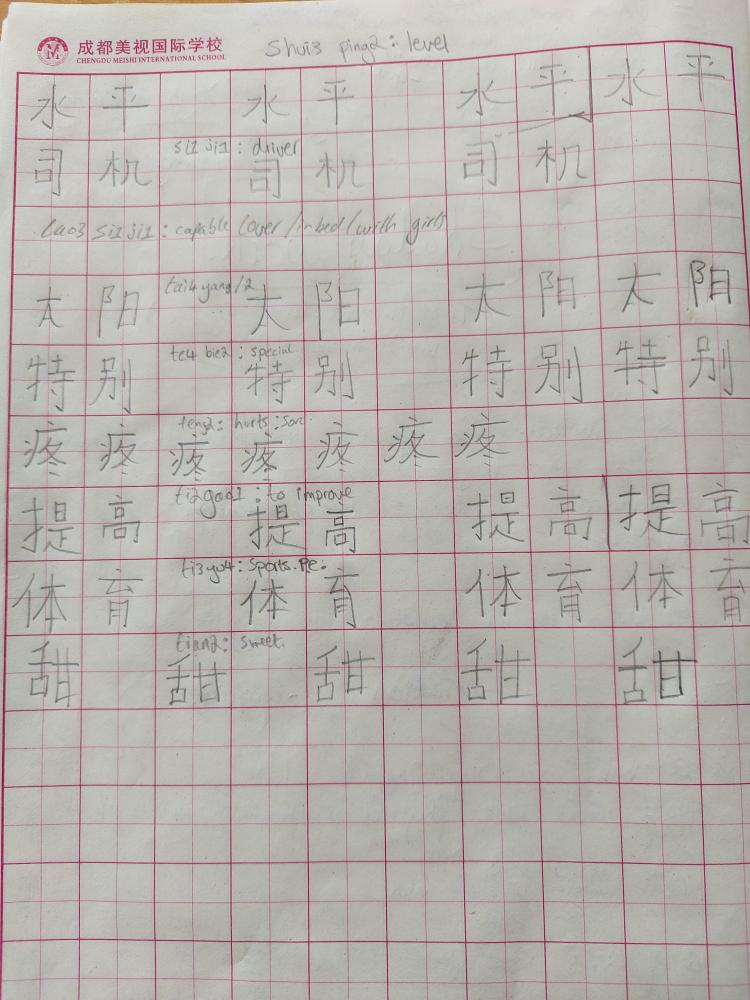 成都美视国际学校
CHENGDU MEISHI INTERNATIONAL SCHOOL
Shui3 ping2: level
水 平 水 平 水 平 水 平
si1 ji1: driver
司 机 司 机 司 机
lao3 si1 ji1: capable lover/in bed/with girls
tai4 yang/2
太 阳 太 阳 太 阳 太 阳
te4 bie2: special
特 别 特 别 特 别 特 别
teng2: hurts:
疼 疼 疼 疼 疼 疼 疼
ti2gao1: to improve
提 高 提 高 提 高 提 高
ti3yu4: Sports.Pe.
体 育 体 育 体 育 体 育
tian2: sweet.
甜 甜 甜 甜 甜